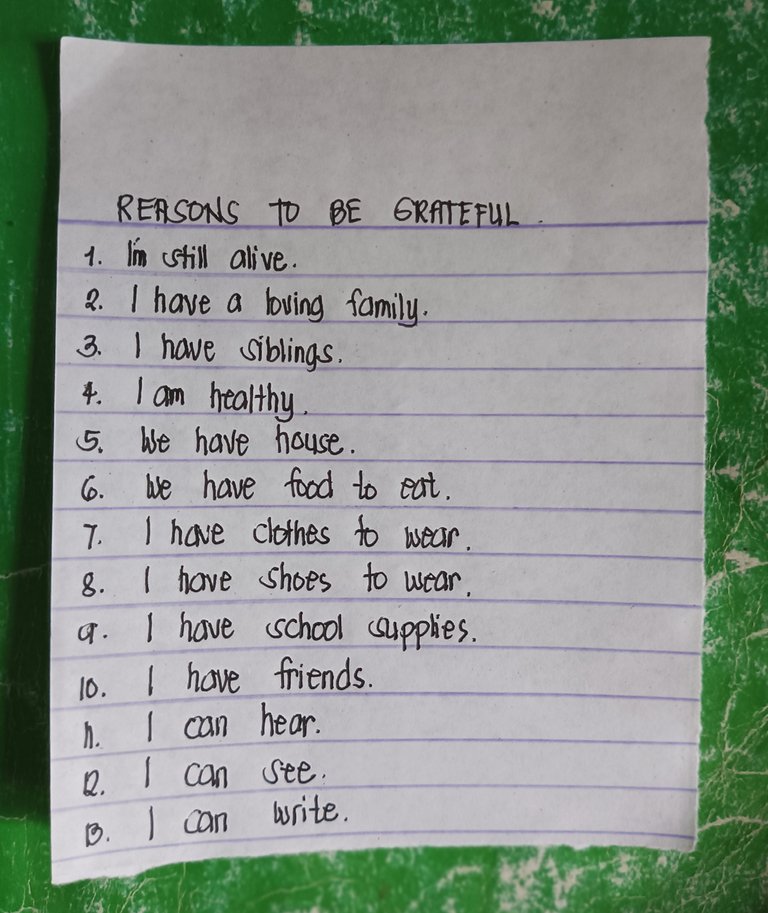 REASONS TO BE GRATEFUL.
1. I'm still alive.
2. I have a loving family.
3. I have siblings.
4. I am healthy.
5. We have house.
6. We have food to eat.
7. I have clothes to wear.
8. I have shoes to wear.
9. I have school supplies.
10. I have friends.
11. I can hear.
12. I can see.
13. I can write.